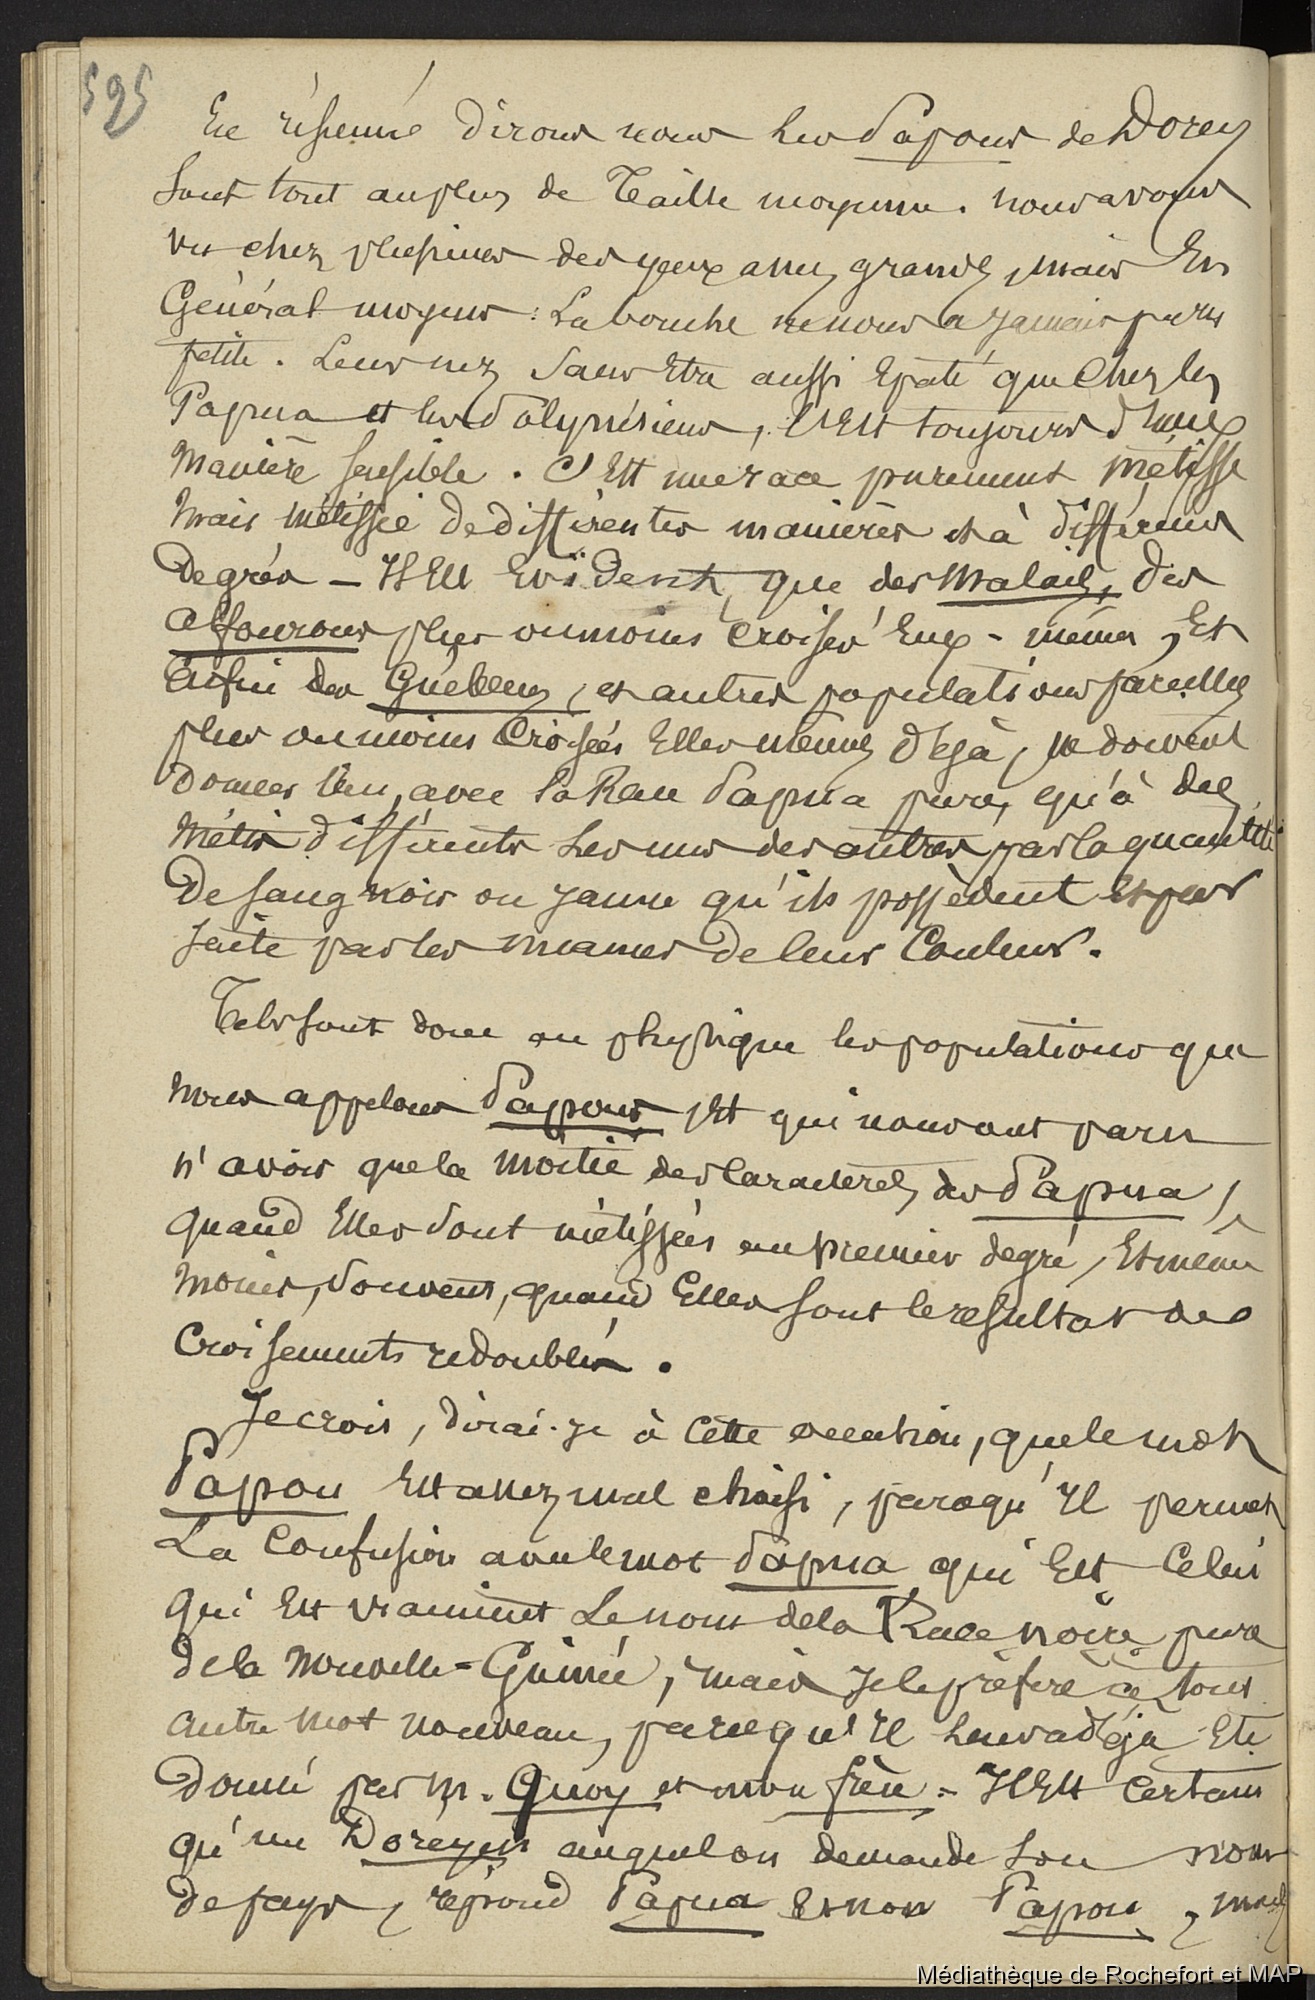 595
En résumé dirons nous les Papous de Dorey
sont tout au plus de Taille moyenne. nous avons
vu chez plusieurs des yeux assez grands, mais En
Général moyens : La bouche ne nous a jamais paru
petite. Leur nez sans Etre aussi Epaté que Chez les
Papua et les Polynésiens, l'Est toujours d'une
Manière sensible. C'Est une race purement Métisse
Mais Métissée de différentes manières et à différens
Degrés – Il Est Evident, que des Malais, des
alfourous plus ou moins Croisés Eux-mêmes, Et
Enfin des Guébéens, et autres populations pareilles
plus ou moins Croisées Elles mêmes déjà, ne doivent
donner lieu, avec la Race Papua pure, qu'à des
Métis différents les uns des autres par la quantité
De sang noir ou jaune qu'ils possèdent et par
suite par les nuances de leur Couleur.
Tels sont donc au physique les populations que
nous appelons Papous, Et qui nous ont paru
n'avoir que la moitié des Caracteres des Papua,
quand Elles sont métissées au premier degré, Et même
Moins, souvent, quand Elles sont le resultat des
Croisements redoublés.
Je crois, dirai-je à Cette occasion, que le mot
Papou Est assez mal choisi, parcqu'Il permet
La Confusion avec le mot Papua qui Est Celui
qui Est vraiment Le nom de la Race noire pure
de la Nouvelle-Guinée, mais je le préfère à tout
autre mot nouveau, parcequ'Il leur a déjà Eté
Donné par M. Quoy et mon frère = Il Est Certain
qu'un Doreyen auquel on demande son nom
de pays, répond Papua Et non Papou, mais
Médiathèque de Rochefort et MAP